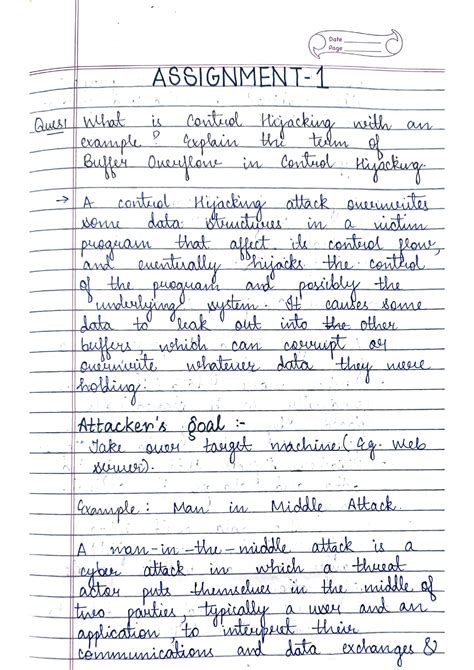 Date
Page
ASSIGNMENT-1
Ques1 What is Control Hijacking with an
example? Explain the term of
Buffer Overflow in Control Hijacking.
→ A control Hijacking attack overwrites
some data structures in a victim
program that affect its control flow,
and eventually hijacks the control
of the program and possibly the
underlying system. It causes some
data to leak out into the other
buffers, which can corrupt or
overwrite whatever data they were
holding.
Attacker's goal :-
Take over target machine (Eg. web
server).
Example : Man in Middle Attack.
A man-in-the-middle attack is a
cyber attack in which a threat
actor puts themselves in the middle of
two parties, typically a user and an
application, to interpret their
communications and data exchanges &